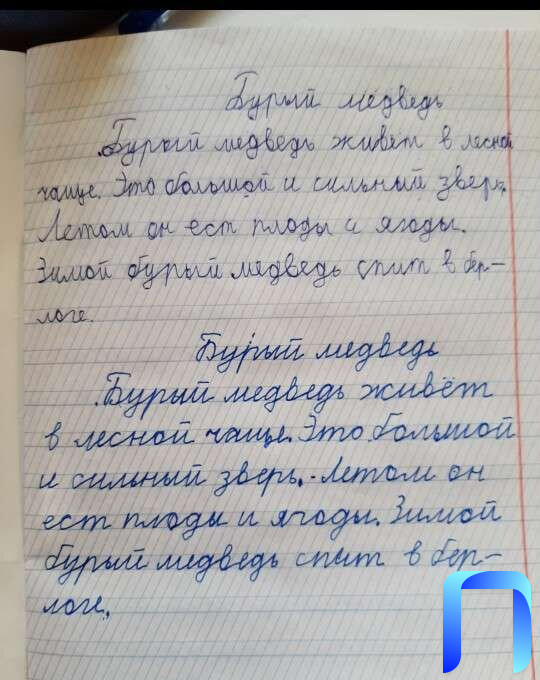 Бурый медведь
Бурый медведь живёт в лесной
чаще. Это большой и сильный зверь.
Летом он ест плоды и ягоды.
Зимой бурый медведь спит в бер-
логе.
Бурый медведь
Бурый медведь живёт
в лесной чаще. Это большой
и сильный зверь. Летом он
ест плоды и ягоды. Зимой
бурый медведь спит в бер-
логе.